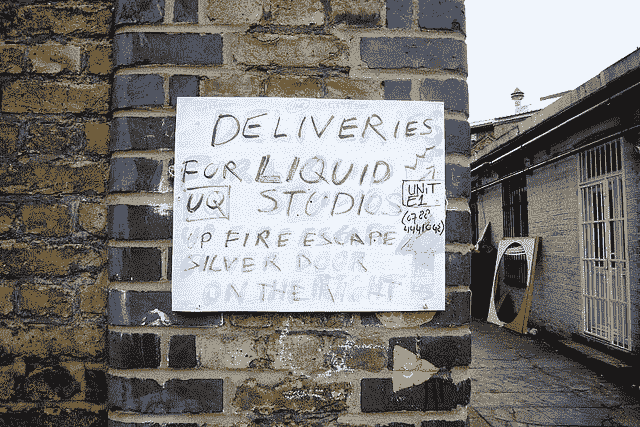 DELIVERIES
FOR LIQUID
UQ STUDIOS
UNIT
E1
UP FIRE ESCAPE
SILVER DOOR
ON THE RIGHT